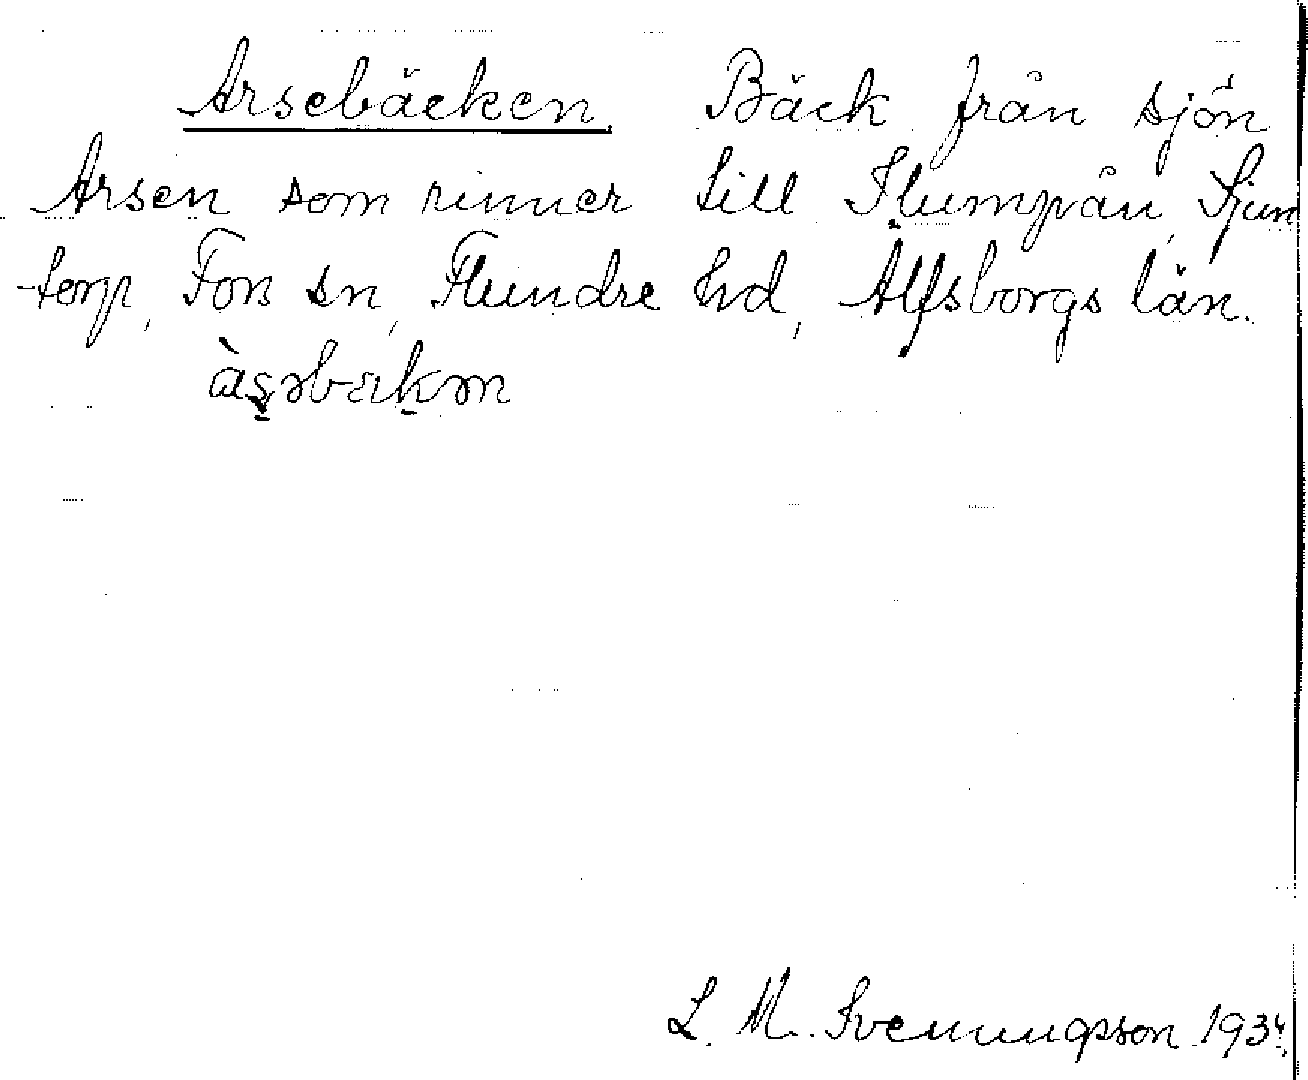 Arsebäcken Bäck från sjön
Arsen som rinner till Slumpån, Sjun
torp, Fors sn, Flundre hd, Älfsborgs län.
L. M. Svenungsson 1934